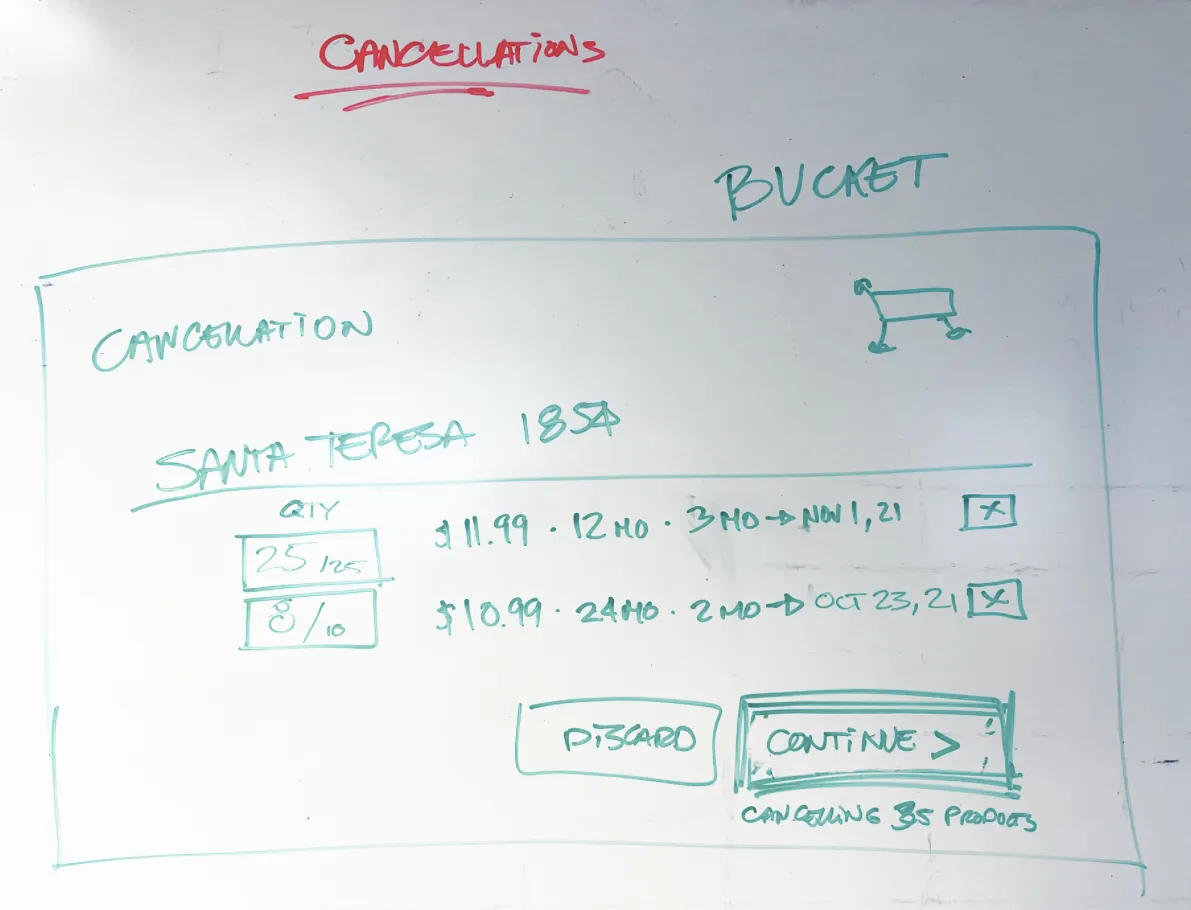 CANCELLATIONS
BUCKET
CANCELLATION
SANTA TERESA 1854
QTY
25/25 $11.99 · 12 MO · 3 MO → NOV 1, 21 X
8/10 $10.99 · 24 MO · 2 MO → OCT 23, 21 X
DISCARD CONTINUE >
CANCELLING 35 PRODUCTS